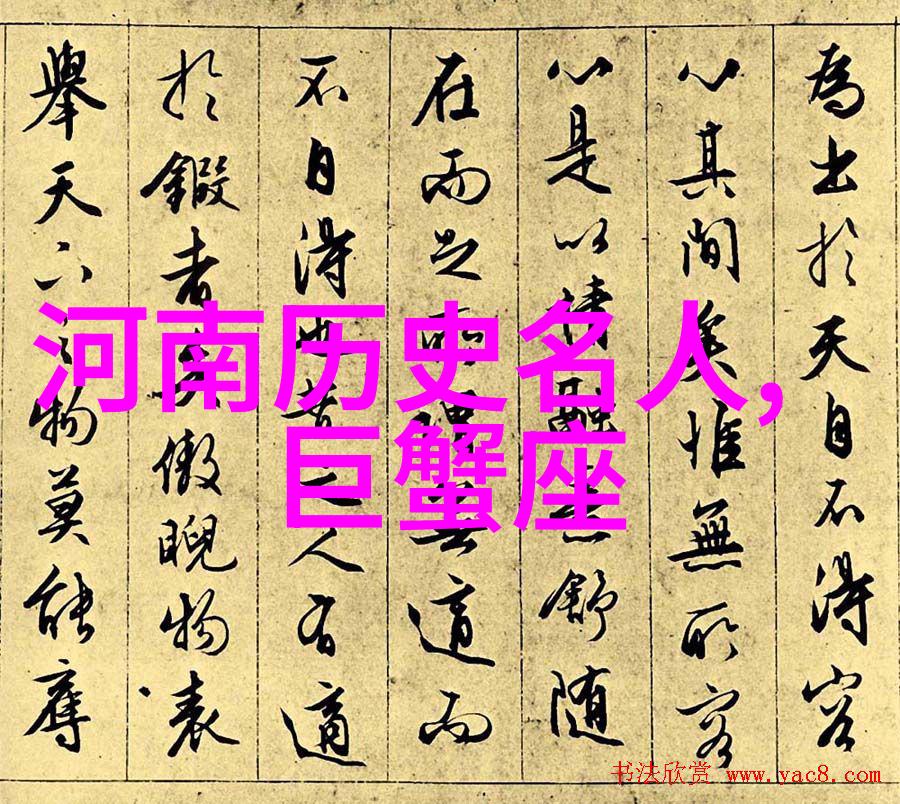 為出於天自不得容
心其間矣惟無所容
心是以情融意舒隨
在而適而
不自得也之人有適
於鍜者傲睨物表
舉天下之物莫能
河南历史名人,
巨蟹座
书法欣赏 www.yac8.com